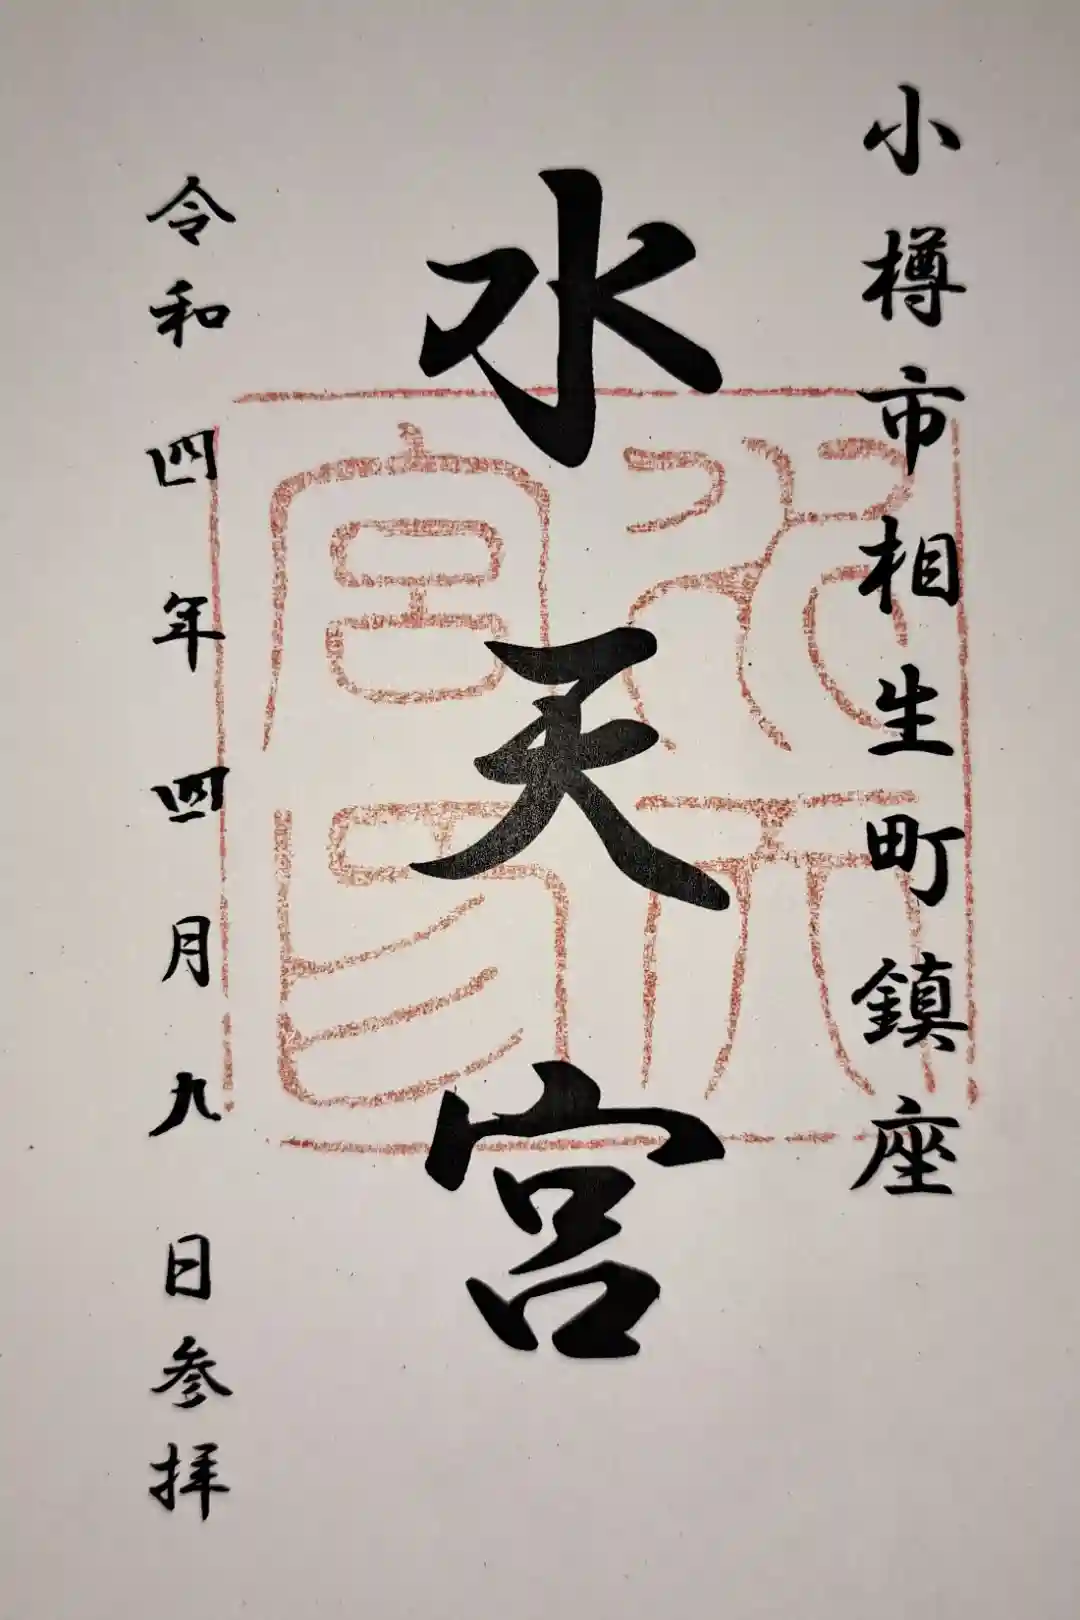 小樽市相生町鎮座
水天宮
令和四年四月九日参拝